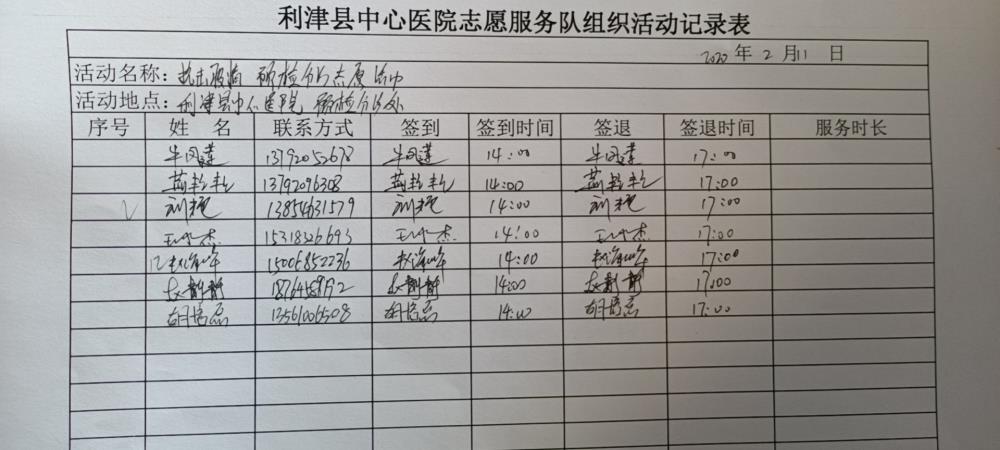 利津县中心医院志愿服务队组织活动记录表
2020 年 2 月 11 日
活动名称：抗击疫情 预检分诊志愿活动
活动地点：利津县中心医院 预检分诊处
序号 姓 名 联系方式 签到 签到时间 签退 签退时间 服务时长
牛凤莲 13792052678 牛凤莲 14:00 牛凤莲 17:00
13792096308 14:00 17:00
√ 刘艳 13854631579 刘艳 14:00 刘艳 17:00
杰 15318326693 杰 14:00 杰 17:00
赵海峰 15006852236 赵海峰 14:00 赵海峰 17:00
静静 静静 14:00 静静 17:00
胡培磊 13561006508 胡培磊 14:00 胡培磊 17:00